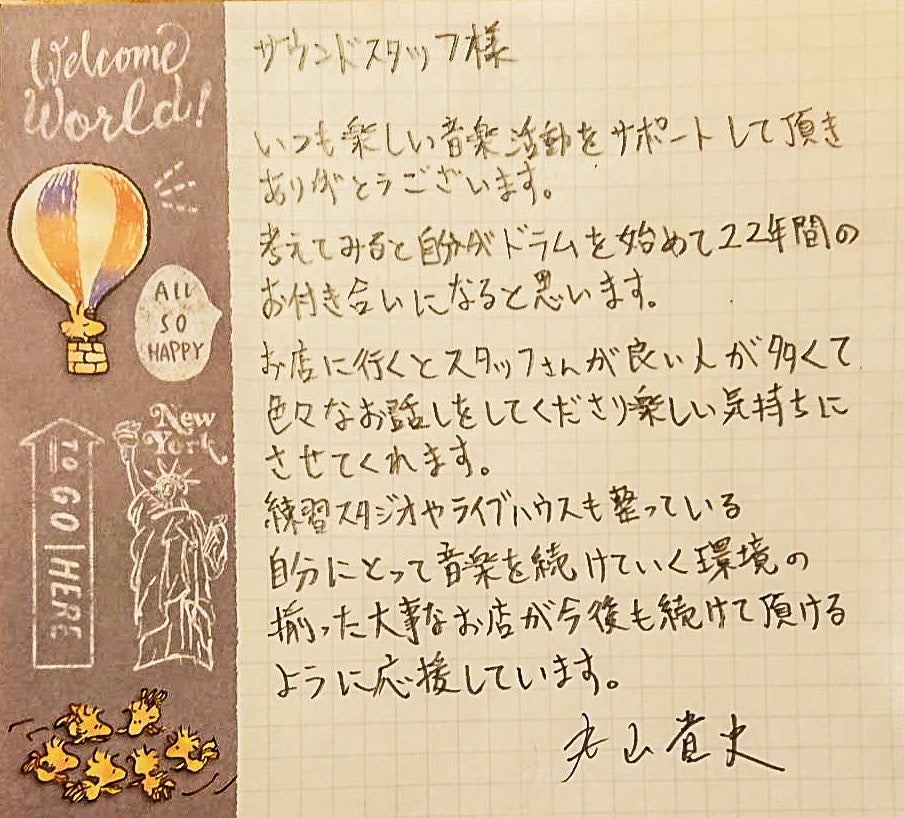 Welcome
World!
ALL
SO
HAPPY
New
York
TO GO HERE
サウンドスタッフ様
いつも楽しい音楽活動をサポートして頂き
ありがとうございます。
考えてみると自分がドラムを始めて22年間の
お付き合いになると思います。
お店に行くとスタッフさんが良い人が多くて
色々なお話しをしてくださり楽しい気持ちに
させてくれます。
練習スタジオやライブハウスも整っている
自分にとって音楽を続けていく環境の
揃った大事なお店が今後も続けて頂ける
ように応援しています。
丸山貴史